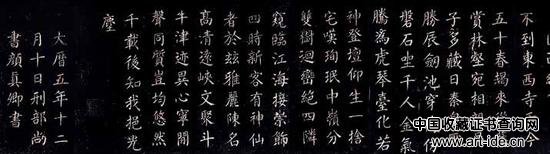 不到東西寺于今
五十春朅來從
賞林壑宛相親
子多藏日秦王
勝辰劍池穿萬
磐石坐千人金氣
騰為虎琴臺化若
神登壇仰生一捨
宅嘆珣珉中嶺分
雙樹迴巒絕四隣
窺臨江海接崇飾
四時新客有神仙
者於茲雅麗陳名
高清遠峽文聚斗
牛津迹異心寧間
聲同質豈均悠然
千載後知我挹光
塵
大曆五年十二
月十日刑部尚
書顏真卿書
中国收藏证书查询网
www.art-ide.cn